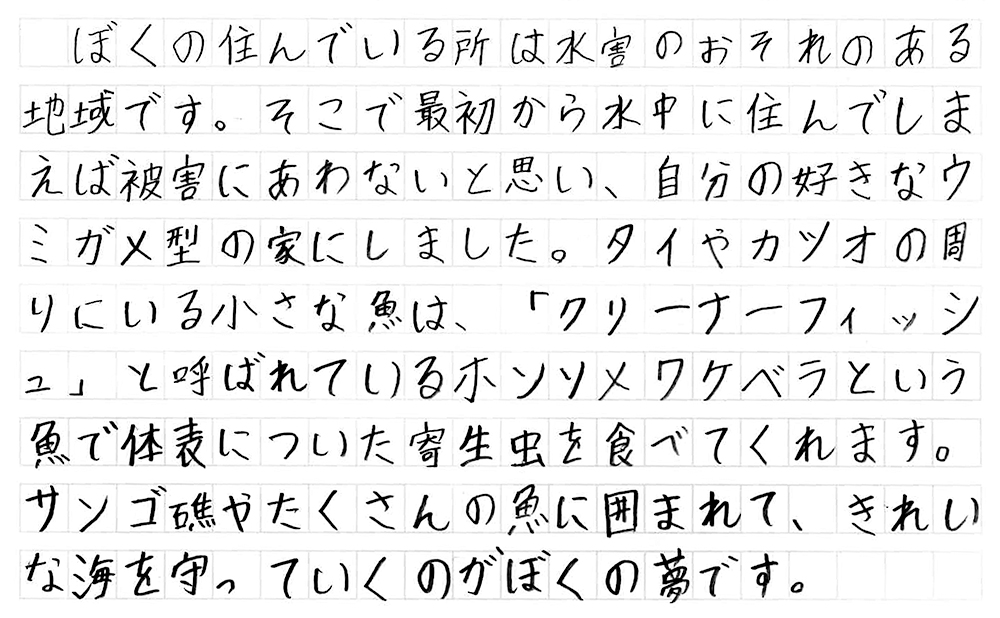 ぼくの住んでいる所は水害のおそれのある
地域です。そこで最初から水中に住んでしま
えば被害にあわないと思い、自分の好きなウ
ミガメ型の家にしました。タイやカツオの周
りにいる小さな魚は、「クリーナーフィッシ
ュ」と呼ばれているホンソメワケベラという
魚で体表についた寄生虫を食べてくれます。
サンゴ礁やたくさんの魚に囲まれて、きれい
な海を守っていくのがぼくの夢です。